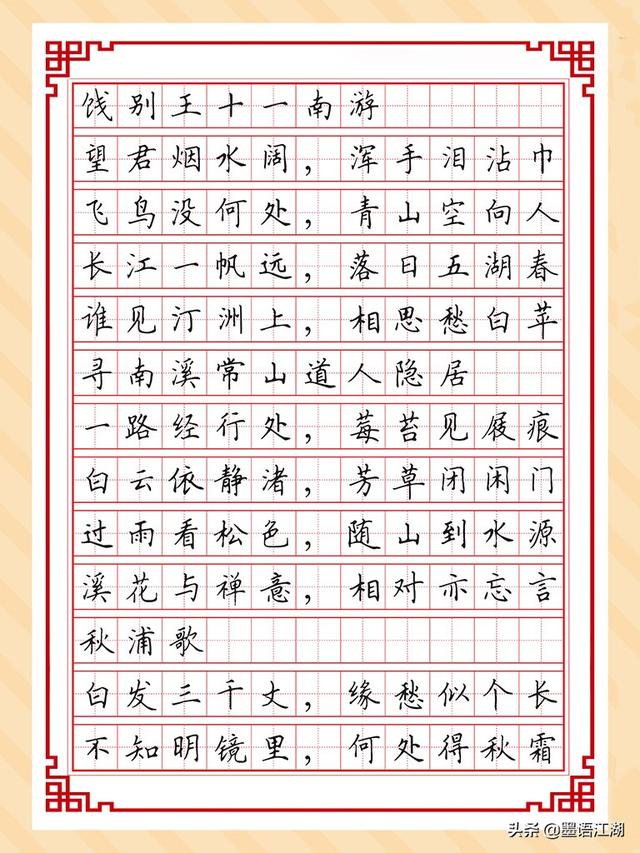 饯别王十一南游
望君烟水阔，浑手泪沾巾
飞鸟没何处，青山空向人
长江一帆远，落日五湖春
谁见汀洲上，相思愁白苹
寻南溪常山道人隐居
一路经行处，莓苔见屐痕
白云依静渚，芳草闭闲门
过雨看松色，随山到水源
溪花与禅意，相对亦忘言
秋浦歌
白发三千丈，缘愁似个长
不知明镜里，何处得秋霜
头条 @墨语江湖